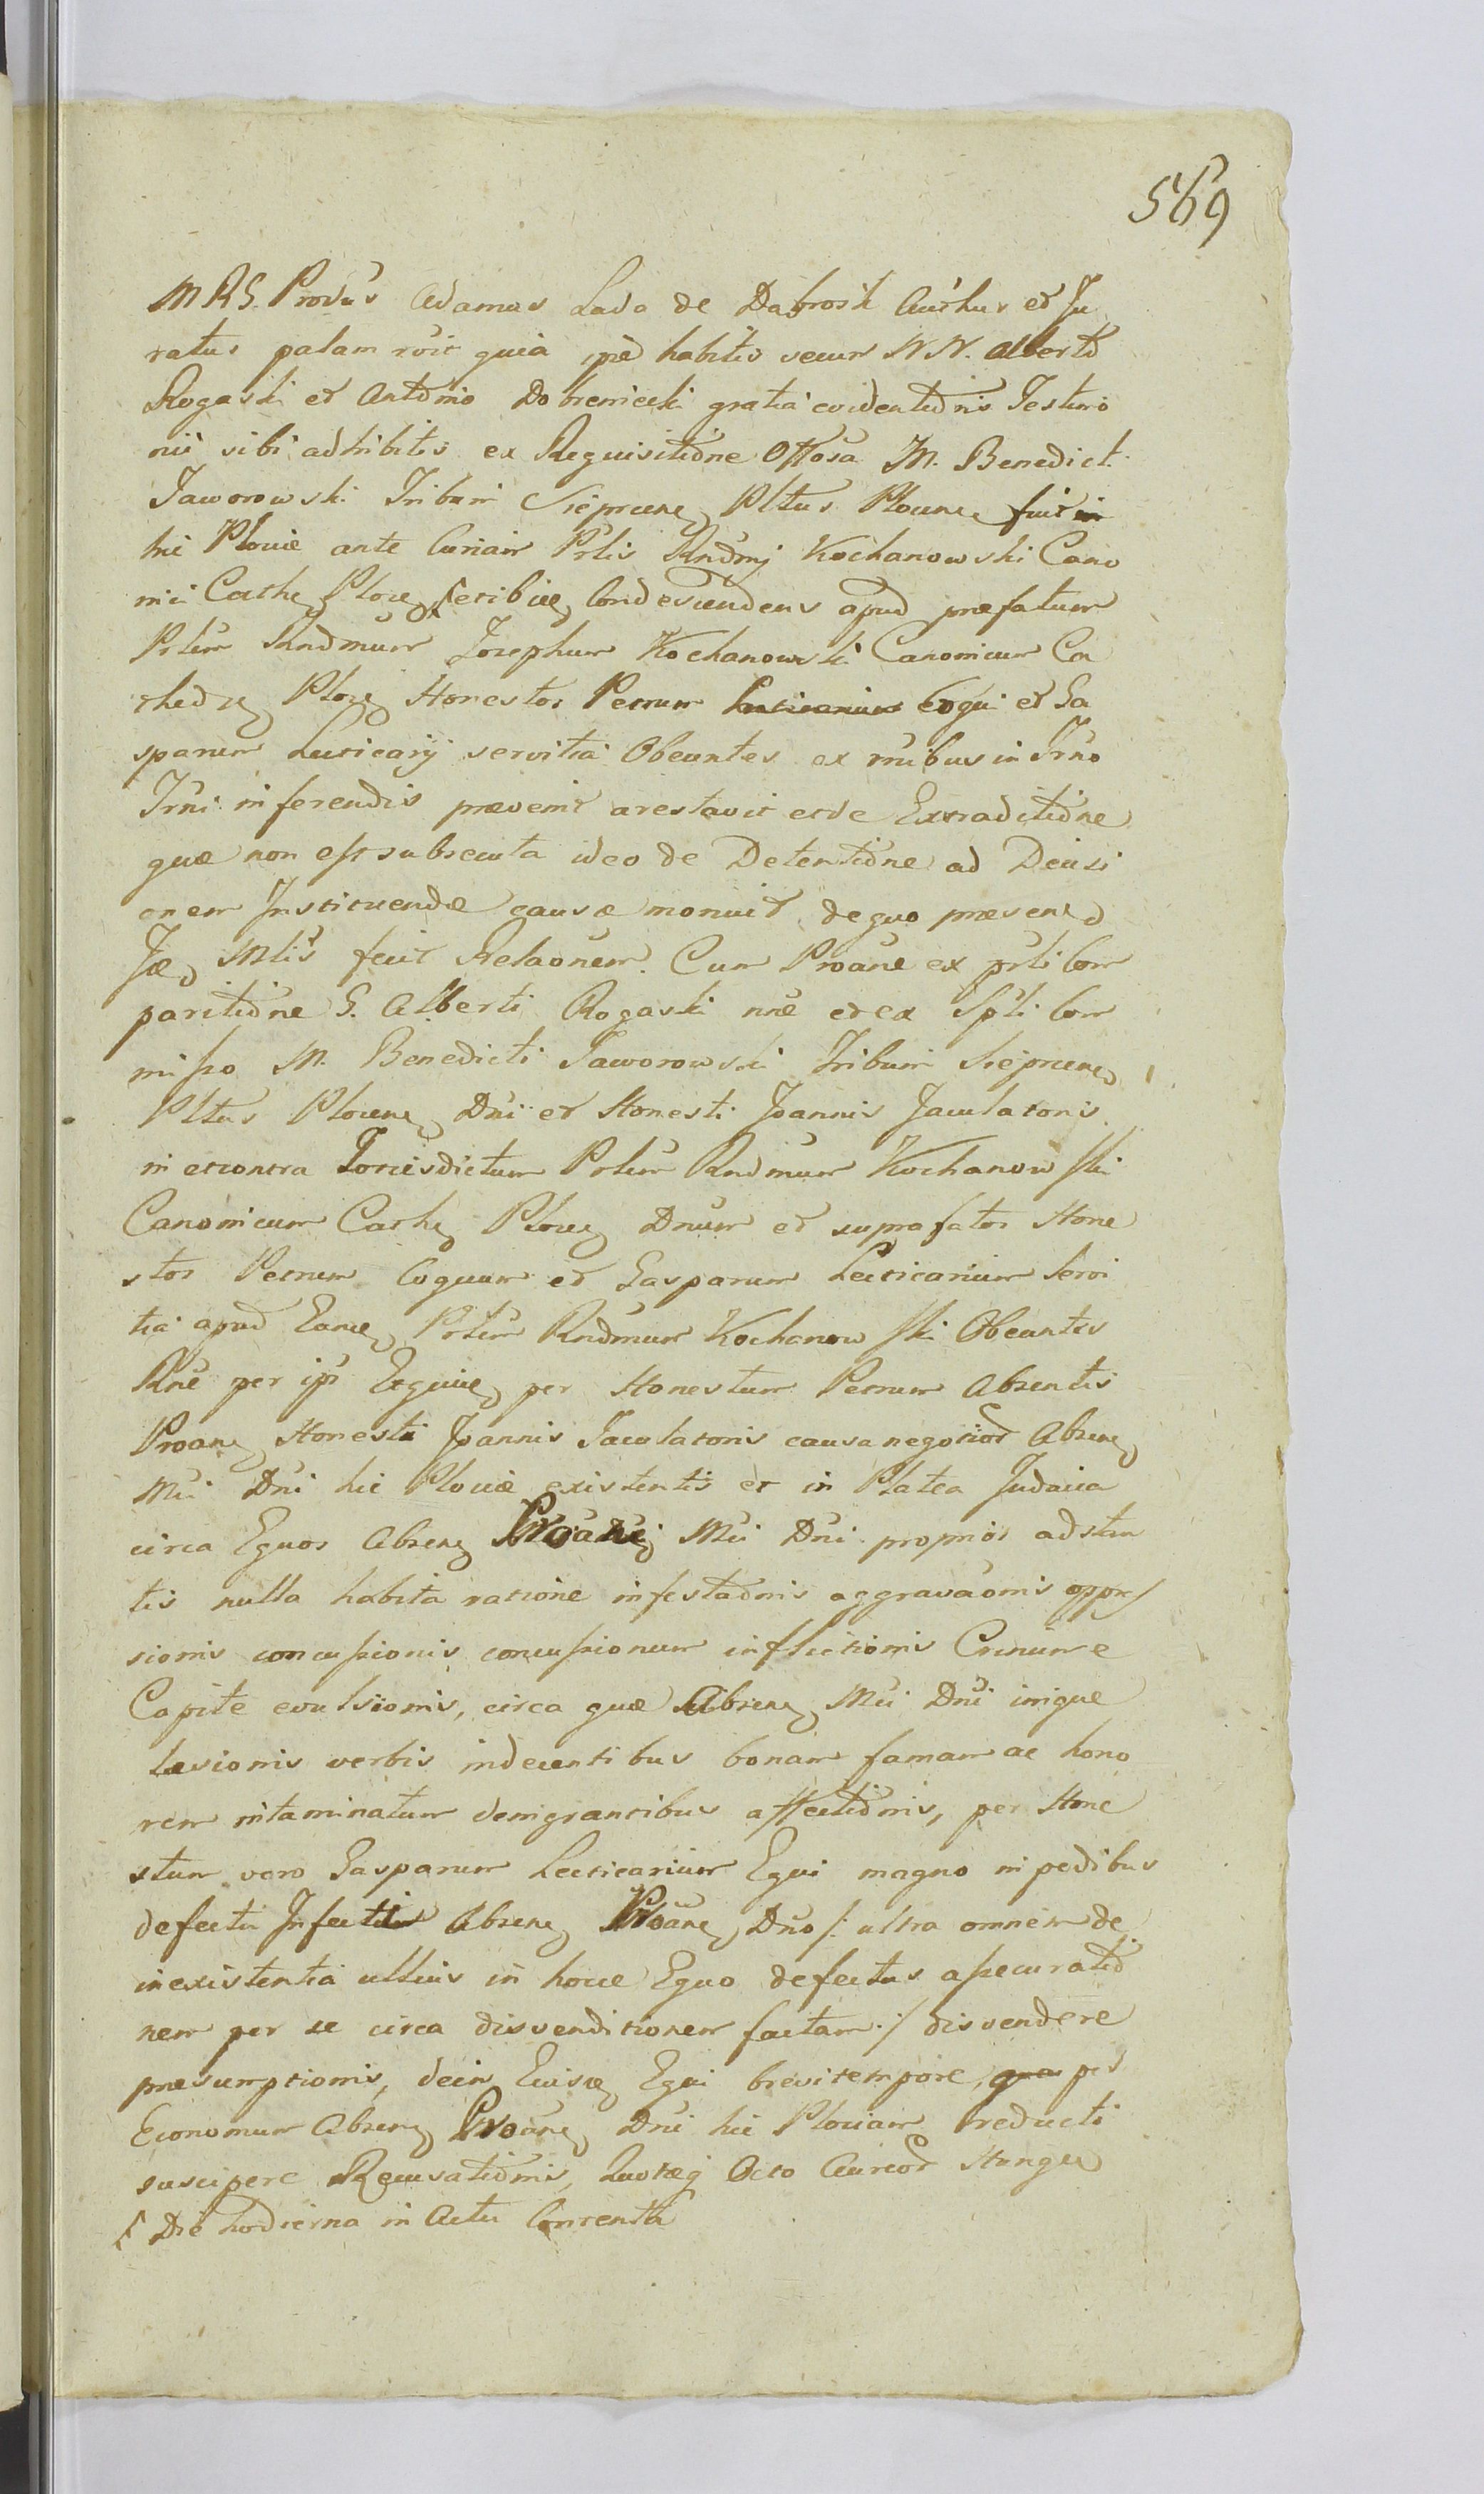 569
MRS. Provus Adamus Lada de Dabrosk Auchus et Ju
ratus palam roit quia ipse habitis secum NN. Alberto
Rogaski et Antonio Dobreniecki gratia evidentionis Testimo
nii sibi adhibitis ex Requisitione Offosa M. Benedict.
Jaworowski Tribuni Sieprcens Pltus Plocens fuit in
hic Plociæ ante Curiam Prlis Rndmj Kochanowski Cano
nici Cathe Ploce Condescendens apud præfatum
Prlem Rndmum Josephum Kochanowski Canonicum Ca
thedr Ploce Honestos Petrum Lecticarium Coqui et Ga
sparum Lecticarij servitia Obeuntes ex mibus in Trno
Trni inferendis prævenit arestavit et de Extraditione
quæ non est subsecuta ideo de Detentione ad Decisi
onem Instituendæ causæ monuit de quo prævene
Jæ Mlis fecit Relaonem. Cum Proane ex prli Com
paritione G. Alberti Rogaski nne et ex Spli Com
misso M. Benedicti Jaworowski Tribuni Sieprcens
Pltus Plocens Dni et Honesti Joannis Jaculatoris
in et contra Totiesdictum Prlem Rndmum Kochanowski
Canonicum Cathe Ploce Dnum et suprafatos Hone
stos Petrum Coquum et Gasparum Lecticarium Servi
tia apud Eunde Prlem Rndmum Kochanowski Obeuntes
Rne per ips Exquive per Honestum Petrum Absentis
Proane Honesti Joannis Jaculatoris causa negotior Absene
Mci Dni hic Plociæ existentis et in Platea Judaica
circa Equos Absene Proane Mci Dni proprios adstan
tis nulla habita ratione infestaonis aggravaonis oppres
sionis concussionis concussionum inflictionis Crinium e
Capite evulsionis, circa quæ Absene Mci Dni inique
læsionis verbis indecentibus bonam famam ac hono
rem intaminatum denigrantibus affectionis, per Hone
stum vero Gasparum Lecticarium Equi magno in pedibus
defectu Infecti Absene Proane Dno /: ultra omnem de
inexistentia ullius in hocce Equo defectus assecuratio
nem per se circa disvenditionem factam :/ disvendere
præsumptionis, dein Eiusde Equi brevi tempore, per
Economum Absene Proane Dni hic Plociam reducti
suscipere Recusationis, Quotæq Octo Aureor Hunge
Die hodierna in Actu Contenta